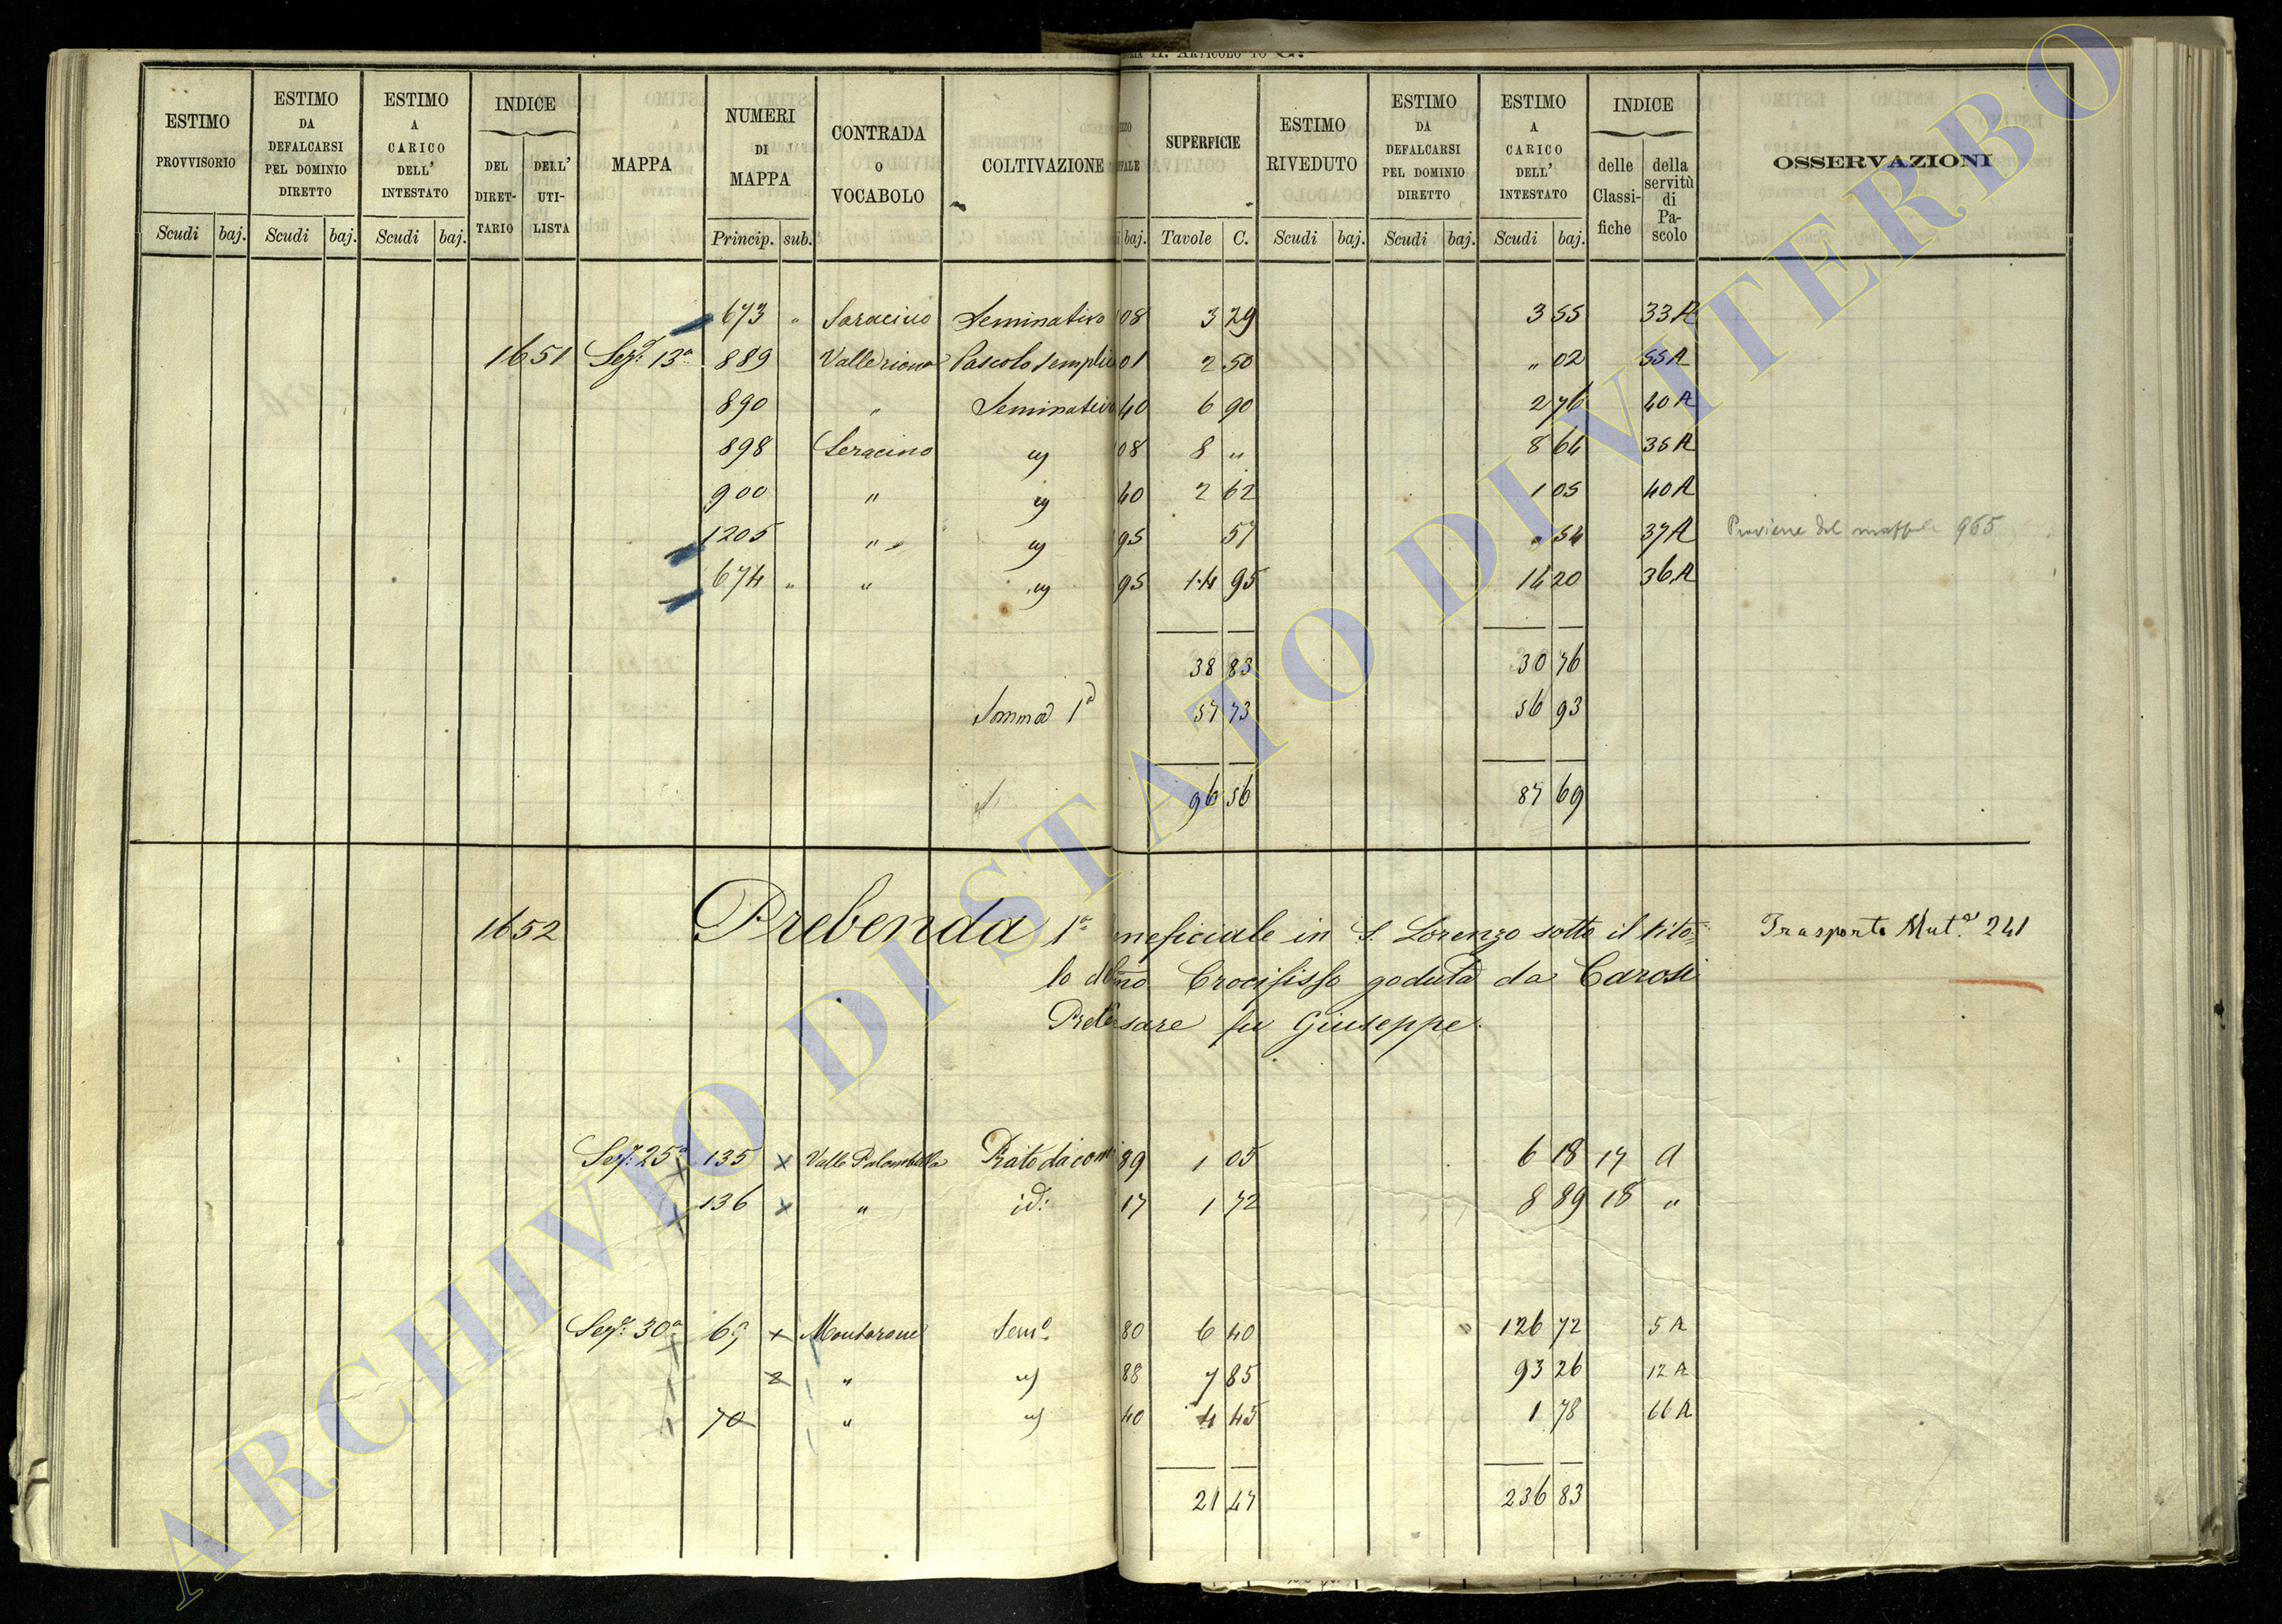 ESTIMO PROVVISORIO
ESTIMO DA DEFALCARSI PEL DOMINIO DIRETTO
ESTIMO A CARICO DELL' INTESTATO
INDICE
DEL DIRET-TARIO
DELL' UTI-LISTA
MAPPA
NUMERI DI MAPPA
CONTRADA O VOCABOLO
COLTIVAZIONE
SUPERFICIE
ESTIMO RIVEDUTO
ESTIMO DA DEFALCARSI PEL DOMINIO DIRETTO
ESTIMO A CARICO DELL' INTESTATO
INDICE
delle Classi-fiche
della servitù di Pa-scolo
OSSERVAZIONI
Scudi baj. Scudi baj. Scudi baj. Princip. sub. baj. Tavole C. Scudi baj. Scudi baj. Scudi baj.
673 " Saracino Seminativo 08 3 29 3 55 33 A
1651 Sez. 13a 889 Pascolo 01 2 50 " 02 55 A
890 " Seminativo 40 6 90 2 76 40 A
898 Seracino 08 8 " 8 64 35 A
900 " 40 2 62 1 05 40 A
1205 " 95 57 " 54 37 A Proviene del 965
674 " " 95 14 95 14 20 36 A
38 83 30 76
Somma 1a 57 73 56 93
96 56 87 69
1652 Prebenda 1a neficiale in S. Lorenzo sotto il tito= Trasporto Mut.a 241
lo del mo Crocifisso goduta da Carosi
Prete sare fu Giuseppe
Sez. 25a 135 x Valle Palombella Prato da 89 1 05 6 18 17 A
136 x " id: 17 1 72 8 89 18 "
Sez. 30a 69 x Montarone Sem.o 80 6 40 126 72 5 A
2 " 88 7 85 93 26 12 A
70 " 40 4 45 1 78 66 A
21 47 236 83
ARCHIVIO DI STATO DI VITERBO